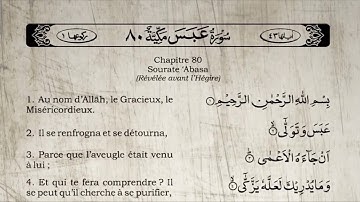 سُوْرَةُ عَبَسَ مَكِّيَّةٌ ٨٠
Chapitre 80
Sourate 'Abasa
(Révélée avant l'Hégire)
1. Au nom d'Allāh, le Gracieux, le
Miséricordieux.
بِسْمِ اللّٰهِ الرَّحْمٰنِ الرَّحِيْمِ
2. Il se renfrogna et se détourna,
عَبَسَ وَتَوَلّٰٓى
3. Parce que l'aveugle était venu
à lui ;
اَنْ جَآءَهُ الْاَعْمٰى
4. Et qui te fera comprendre ? Il
se peut qu'il cherche à se purifier,
وَمَا يُدْرِيْكَ لَعَلَّهٗ يَزَّكّٰٓى